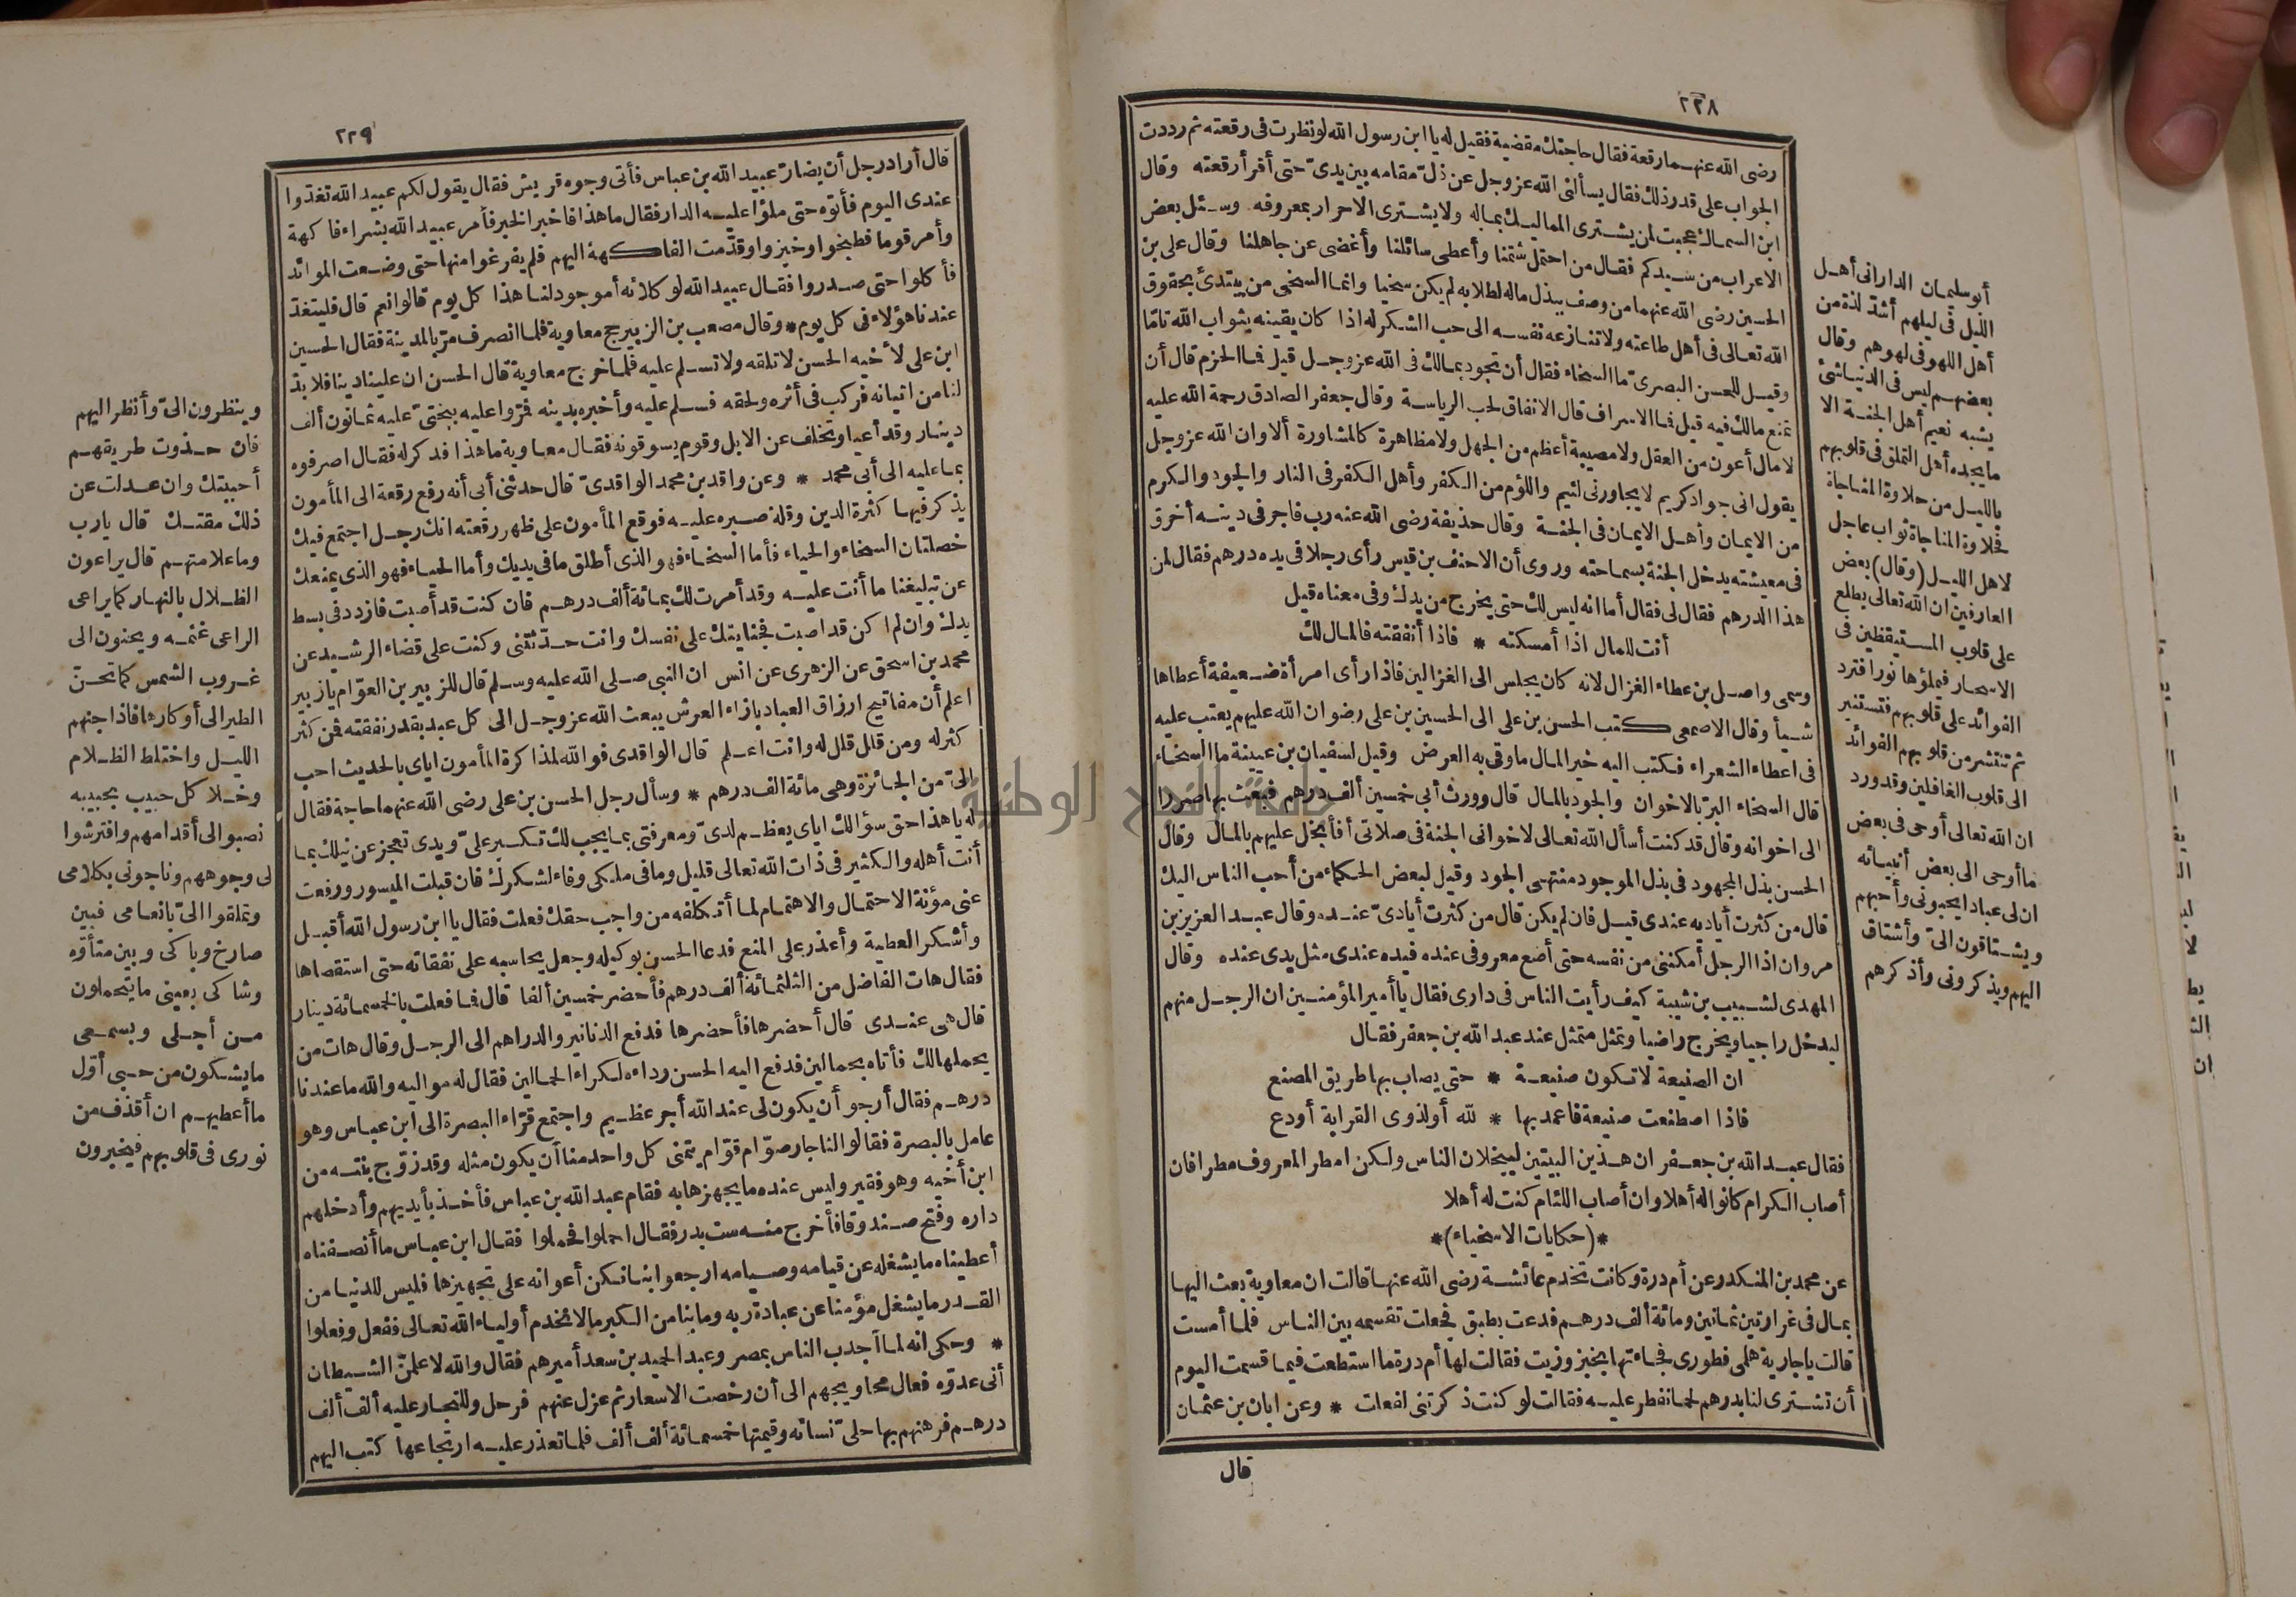 ٢٢٨
رضى الله عنهما رقعة فقال حاجتك مقضية فقيل له يا ابن رسول الله لو نظرت فى رقعته ثم رددت
الجواب على قدر ذلك فقال يسألنى الله عز وجل عن ذل مقامه بين يدى حتى أقرأ رقعته وقال
ابن السماك عجبت لمن يشترى المماليك بماله ولا يشترى الاحرار بمعروفه وسئل بعض
الاعراب من سيدكم فقال من احتمل شتمنا وأعطى سائلنا وأغضى عن جاهلنا وقال على بن
الحسين رضى الله عنهما من وصف ببذل ماله لطلابه لم يكن سخيا وانما السخى من يبتدئ بحقوق
الله تعالى فى أهل طاعته ولا تنازعه نفسه الى حب الشكر له اذا كان يقينه بثواب الله تامّا
وقيل للحسن البصرىّ ما السخاء فقال أن تجود بمالك فى الله عز وجل قيل فما الحزم قال أن
تمنع مالك فيه قيل فما الاسراف قال الانفاق لحب الرياسة وقال جعفر الصادق رحمة الله عليه
لا مال أعون من العقل ولا مصيبة أعظم من الجهل ولا مظاهرة كالمشاورة ألا وان الله عز وجل
يقول انى جواد كريم لا يجاورنى لئيم واللؤم من الكفر وأهل الكفر فى النار والجود والكرم
من الايمان وأهل الايمان فى الجنة وقال حذيفة رضى الله عنه رب فاجر فى دينه أخرق
فى معيشته يدخل الجنة بسماحته وروى أن الاحنف بن قيس رأى رجلا فى يده درهم فقال لمن
هذا الدرهم فقال لى فقال أما انه ليس لك حتى يخرج من يدك وفى معناه قيل
أنت للمال اذا أمسكته * فاذا أنفقته فالمال لك
وسمى واصل بن عطاء الغزال لانه كان يجلس الى الغزالين فاذا رأى امرأة ضعيفة أعطاها
شيأ وقال الاصمعى كتب الحسن بن على الى الحسين بن على رضوان الله عليهم يعتب عليه
فى اعطاء الشعراء فكتب اليه خير المال ما وقى به العرض وقيل لسفيان بن عيينة ما السخاء
قال السخاء البرّ بالاخوان والجود بالمال قال وورث أبى خمسين ألف درهم فبعث بها صررا
الى اخوانه وقال قد كنت أسأل الله تعالى لاخوانى الجنة فى صلاتى أفأبخل عليهم بالمال وقال
الحسن بذل المجهود فى بذل الموجود منتهى الجود وقيل لبعض الحكماء من أحب الناس اليك
قال من كثرت أياديه عندى قيل فان لم يكن قال من كثرت أيادىّ عنده وقال عبد العزيز بن
مروان اذا الرجل أمكننى من نفسه حتى أضع معروفى عنده فيده عندى مثل يدى عنده وقال
المهدى لشبيب بن شيبة كيف رأيت الناس فى دارى فقال يا أمير المؤمنين ان الرجل منهم
ليدخل راجيا ويخرج راضيا وتمثل متمثل عند عبد الله بن جعفر فقال
ان الصنيعة لا تكون صنيعة * حتى يصاب بها طريق المصنع
فاذا اصطنعت صنيعة فاعمد بها * لله أو لذوى القرابة أودع
فقال عبد الله بن جعفر ان هذين البيتين ليبخلان الناس ولكن امطر المعروف مطرا فان
أصاب الكرام كانوا له أهلا وان أصاب اللئام كنت له أهلا
*(حكايات الاسخياء)*
عن محمد بن المنكدر عن أم درة وكانت تخدم عائشة رضى الله عنها قالت ان معاوية بعث اليها
بمال فى غرارتين ثمانين ومائة ألف درهم فدعت بطبق فجعلت تقسمه بين الناس فلما أمست
قالت يا جارية هلمى فطورى فجاءتها بخبز وزيت فقالت لها أم درة ما استطعت فيما قسمت اليوم
أن تشترى لنا بدرهم لحما نفطر عليه فقالت لو كنت ذكرتنى لفعلت * وعن ابان بن عثمان
قال
أبو سليمان الدارانى أهل
الليل فى ليلهم أشدّ لذة من
أهل اللهو فى لهوهم وقال
بعضهم ليس فى الدنيا شئ
يشبه نعيم أهل الجنة الا
ما يجده أهل التملق فى قلوبهم
بالليل من حلاوة المناجاة
فحلاوة المناجاة ثواب عاجل
لاهل الليل (وقال) بعض
العارفين ان الله تعالى يطلع
على قلوب المستيقظين فى
الاسحار فيملؤها نورا فترد
الفوائد على قلوبهم فتستنير
ثم تنتشر من قلوبهم الفوائد
الى قلوب الغافلين وقد ورد
ان الله تعالى أوحى فى بعض
ما أوحى الى بعض أنبيائه
ان لى عبادا يحبونى وأحبهم
ويشتاقون الىّ وأشتاق
اليهم ويذكرونى وأذكرهم
٢٢٩
قال أراد رجل أن يضارّ عبيد الله بن عباس فأتى وجوه قريش فقال يقول لكم عبيد الله تغدّوا
عندى اليوم فأتوه حتى ملؤا عليه الدار فقال ما هذا فاخبر الخبر فأمر عبيد الله بشراء فاكهة
وأمر قوما فطبخوا وخبزوا وقدّمت الفاكهة اليهم فلم يفرغوا منها حتى وضعت الموائد
فأكلوا حتى صدروا فقال عبيد الله لوكلائه أموجود لنا هذا كل يوم قالوا نعم قال فليتغدّ
عندنا هؤلاء فى كل يوم * وقال مصعب بن الزبير حج معاوية فلما انصرف مرّ بالمدينة فقال الحسين
ابن على لأخيه الحسن لا تلقه ولا تسلم عليه فلما خرج معاوية قال الحسن ان علينا دينا فلا بدّ
لنا من اتيانه فركب فى أثره ولحقه فسلم عليه وأخبره بدينه فمرّوا عليه ببختىّ عليه ثمانون ألف
دينار وقد أعيا وتخلف عن الابل وقوم يسوقونه فقال معاوية ما هذا فذكر له فقال اصرفوه
بما عليه الى أبى محمد * وعن واقد بن محمد الواقدىّ قال حدثنى أبى أنه رفع رقعة الى المأمون
يذكر فيها كثرة الدين وقلة صبره عليه فوقع المأمون على ظهر رقعته انك رجل اجتمع فيك
خصلتان السخاء والحياء فأما السخاء فهو الذى أطلق ما فى يديك وأما الحياء فهو الذى يمنعك
عن تبليغنا ما أنت عليه وقد أمرت لك بمائة ألف درهم فان كنت قد أصبت فازدد فى بسط
يدك وان لم اكن قد اصبت فجنايتك على نفسك وانت حدّثتنى وكنت على قضاء الرشيد عن
محمد بن اسحق عن الزهرى عن انس ان النبى صلى الله عليه وسلم قال للزبير بن العوّام يا زبير
اعلم أن مفاتيح ارزاق العباد بازاء العرش يبعث الله عز وجل الى كل عبد بقدر نفقته فمن كثر
كثر له ومن قلل قلل له وانت اعلم قال الواقدى فو الله لمذاكرة المأمون اياى بالحديث احب
الىّ من الجائزة وهى مائة الف درهم * وسأل رجل الحسن بن على رضى الله عنهما حاجة فقال
له يا هذا حق سؤالك اياى يعظم لدىّ ومعرفتى بما يجب لك تكبر علىّ ويدى تعجز عن نيلك بما
أنت أهله والكثير فى ذات الله تعالى قليل وما فى ملكى وفاء لشكرك فان قبلت الميسور ورفعت
عنى مؤنة الاحتمال والاهتمام لما أتكلفه من واجب حقك فعلت فقال يا ابن رسول الله أقبل
وأشكر العطية وأعذر على المنع فدعا الحسن بوكيله وجعل يحاسبه على نفقاته حتى استقصاها
فقال هات الفاضل من الثلثمائة ألف درهم فأحضر خمسين ألفا قال فما فعلت بالخمسمائة دينار
قال هى عندى قال أحضرها فأحضرها فدفع الدنانير والدراهم الى الرجل وقال هات من
يحملها لك فأتاه بحمالين فدفع اليه الحسن رداءه لكراء الحمالين فقال له مواليه والله ما عندنا
درهم فقال أرجو أن يكون لى عند الله أجر عظيم واجتمع قرّاء البصرة الى ابن عباس وهو
عامل بالبصرة فقالوا لنا جار صوّام قوّام يتمنى كل واحد منا أن يكون مثله وقد زوّج بنته من
ابن أخيه وهو فقير وليس عنده ما يجهزها به فقام عبد الله بن عباس فأخذ بأيديهم وأدخلهم
داره وفتح صندوقا فأخرج منه ست بدر فقال احملوا فحملوا فقال ابن عباس ما أنصفناه
أعطيناه ما يشغله عن قيامه وصيامه ارجعوا بنا نكن أعوانه على تجهيزها فليس للدنيا من
القدر ما يشغل مؤمنا عن عبادة ربه وما بنا من الكبر ما لا نخدم أولياء الله تعالى ففعل وفعلوا
* وحكى انه لما أجدب الناس بمصر وعبد الحميد بن سعد أميرهم فقال والله لا علمنّ الشيطان
أنى عدوّه فعال محاويجهم الى أن رخصت الاسعار ثم عزل عنهم فرحل وللتجار عليه ألف ألف
درهم فرهنهم بها حلىّ نسائه وقيمتها خمسمائة ألف ألف فلما تعذر عليه ارتجاعها كتب اليهم
وينظرون الىّ وأنظر اليهم
فان حذوت طريقهم
أحببتك وان عدلت عن
ذلك مقتك قال يا رب
وما علامتهم قال يراعون
الظلال بالنهار كما يراعى
الراعى غنمه ويحنون الى
غروب الشمس كما تحنّ
الطير الى أوكارها فاذا جنهم
الليل واختلط الظلام
وخلا كل حبيب بحبيبه
نصبوا الى أقدامهم وافترشوا
لى وجوههم وناجونى بكلامى
وتملقوا الىّ بانعامى فبين
صارخ وباكى وبين متأوّه
وشاكى بعينى ما يتحملون
من أجلى وبسمعى
ما يشكون من حبى أوّل
ما أعطيهم ان أقذف من
نورى فى قلوبهم فيخبرون
جامعة النجاح الوطنية